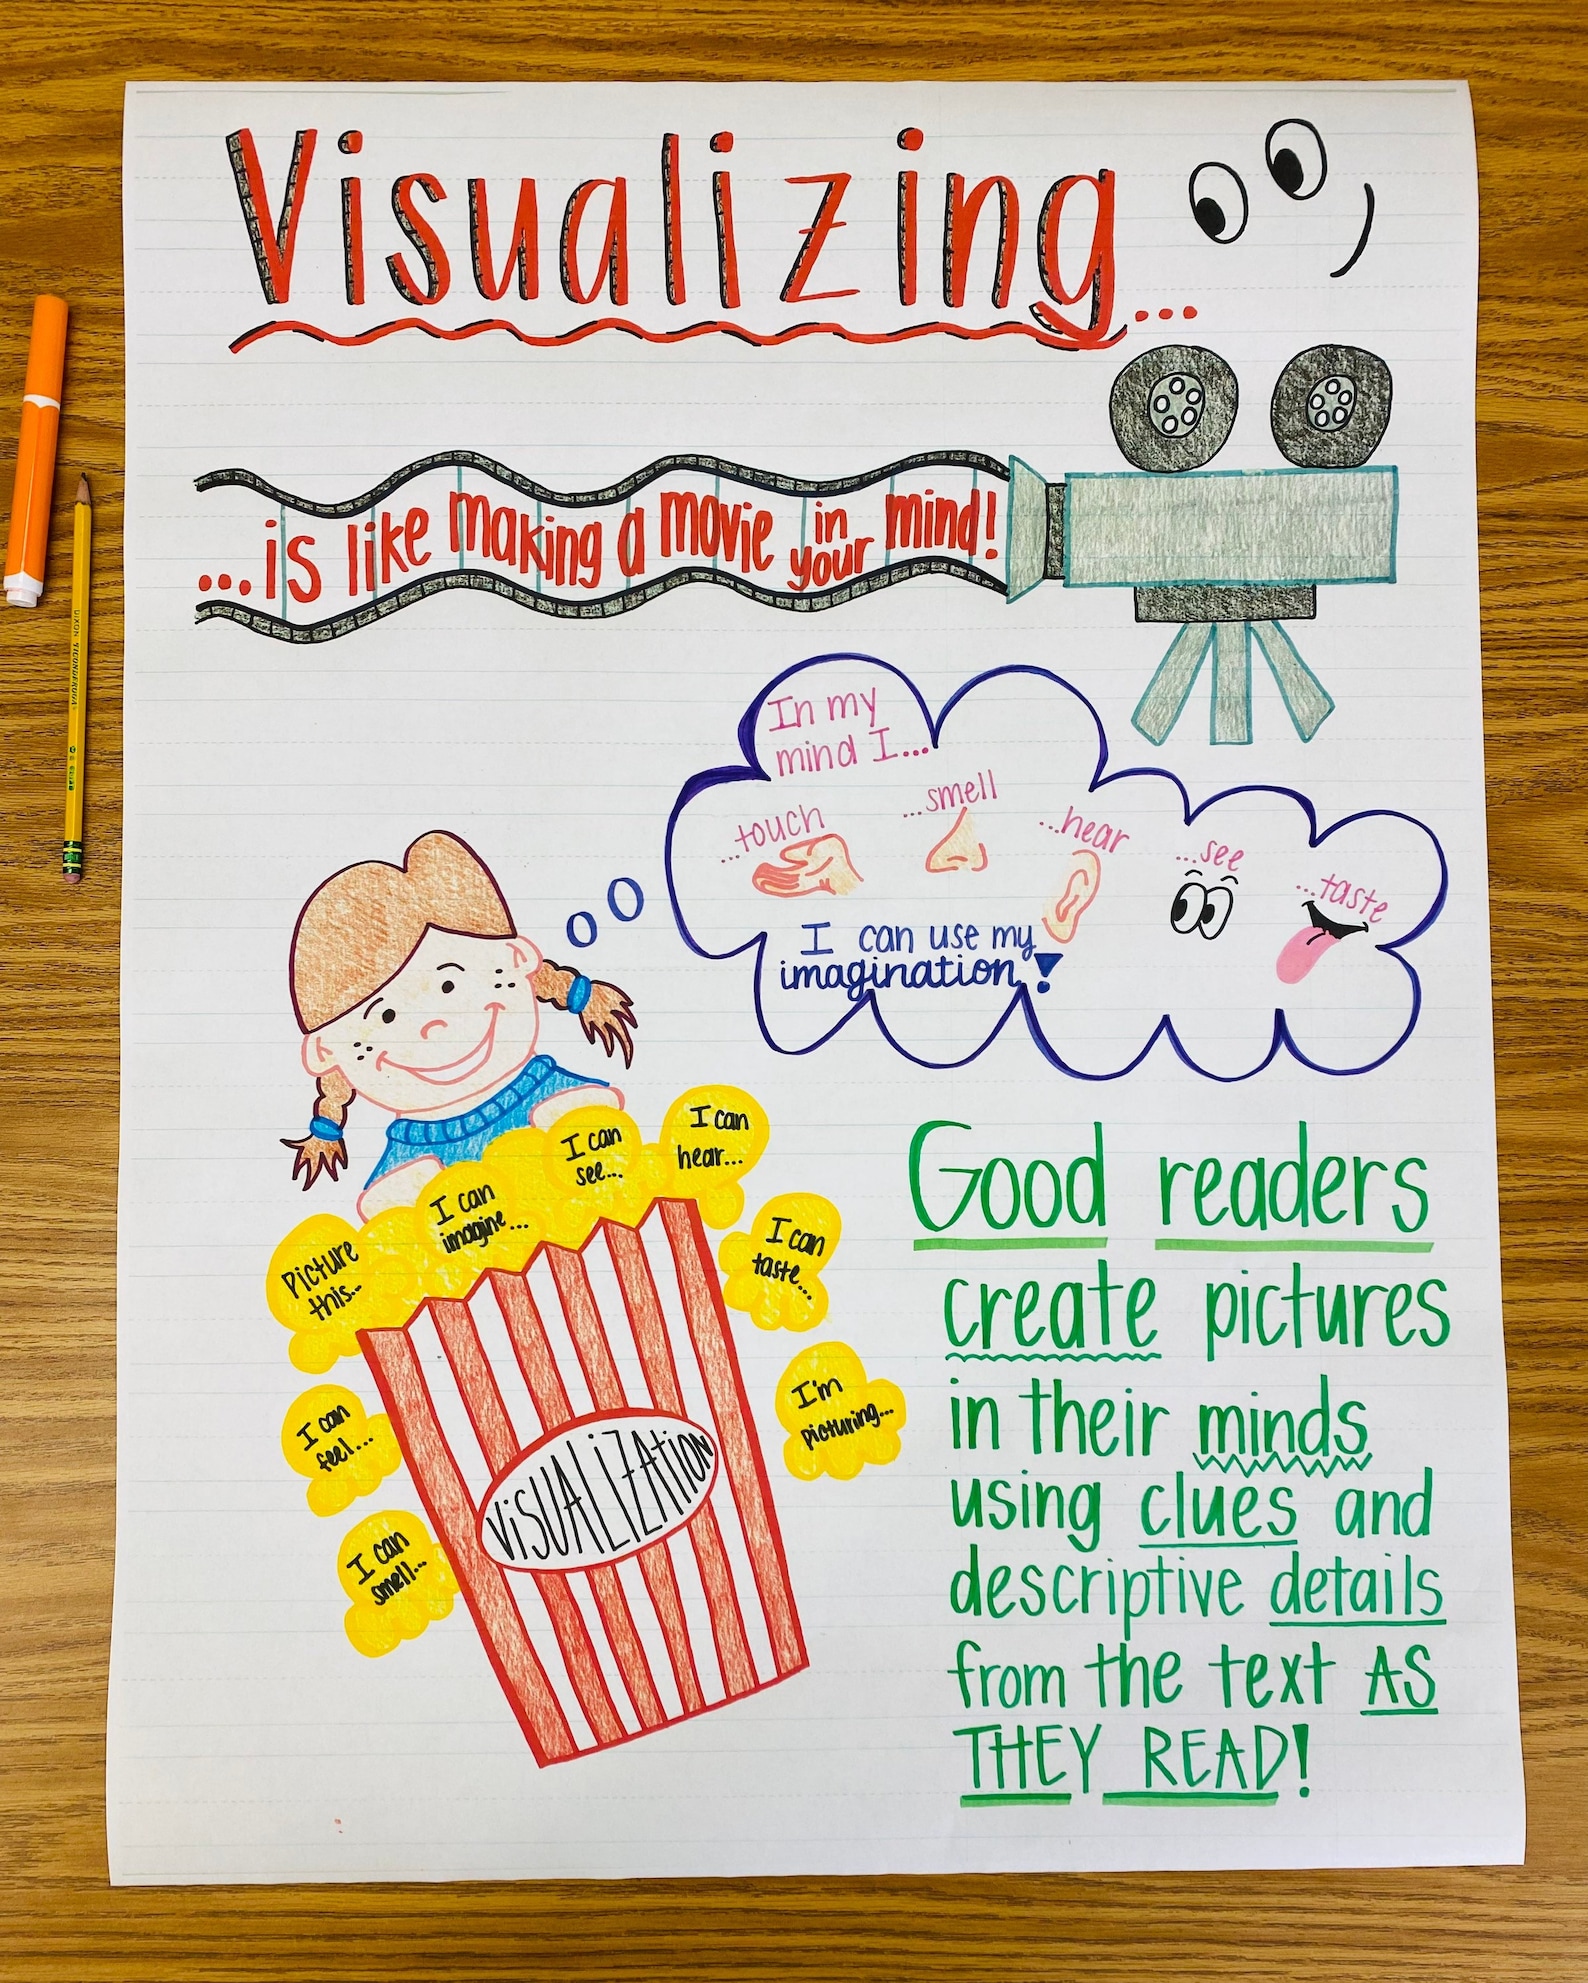 Visualizing...
...is like making a movie in your mind!
In my
mind I...
...touch
...smell
...hear
...see
...taste
I can use my
imagination!
I can
hear...
I can
see...
I can
imagine...
Picture
this...
I can
taste...
I'm
picturing...
I can
feel...
I can
smell...
VISUALIZATION
Good readers
create pictures
in their minds
using clues and
descriptive details
from the text AS
THEY READ!
DIXON TICONDEROGA